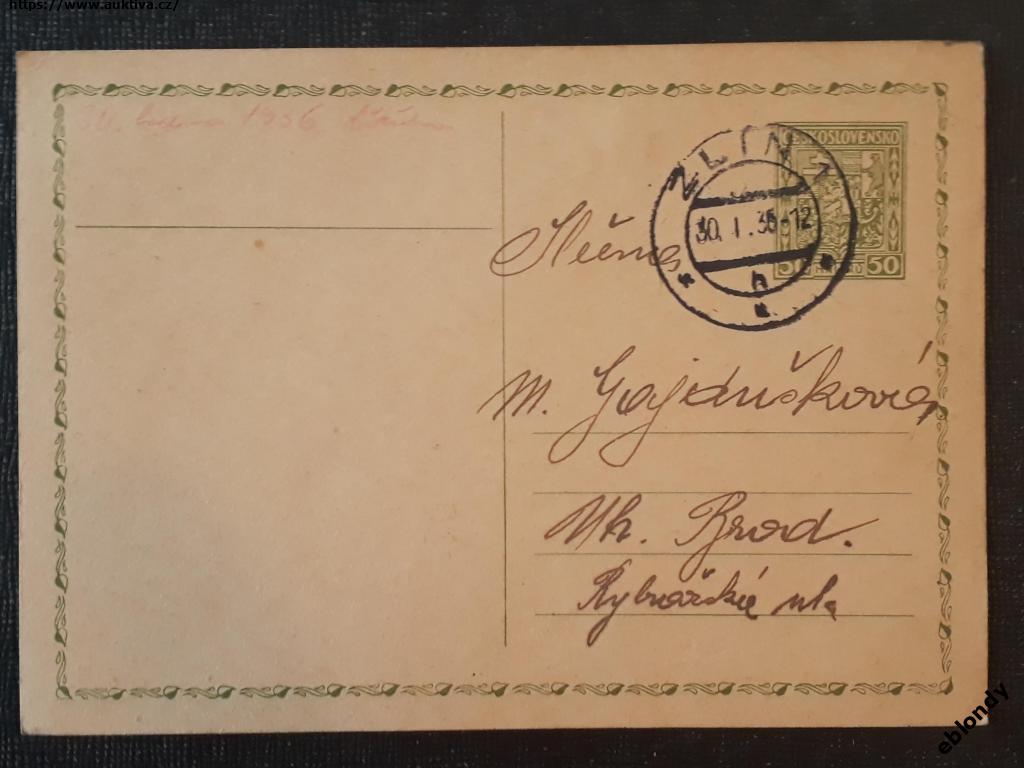 https://www.auktiva.cz/
1936
ČESKOSLOVENSKO
50 HALÉŘŮ 50
ZLÍN 1
30. I. 36-12
h
Slečna
M. Gajdušková,
Uh. Brod.
Rybářská ul.
eblondy